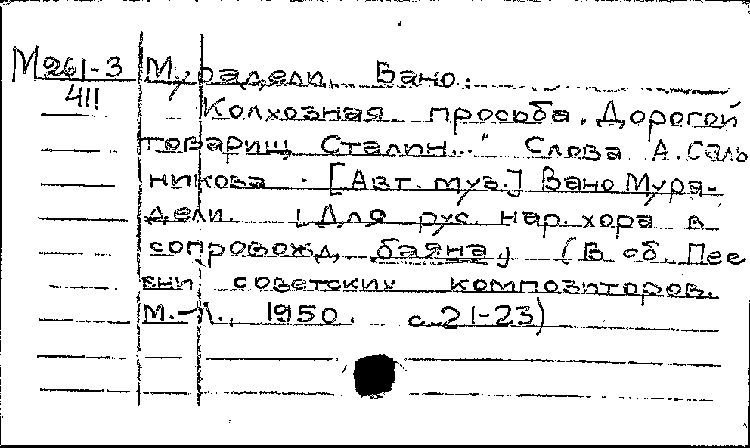 М261-3 Мурадели, Вано.
411
Колхозная просьба. Дорогой
товарищ Сталин..." Слова А. Саль
никова. [Авт. муз.] Вано Мура-
дели. [Для рус. нар. хора в
сопровожд. баяна] (В сб. Пес
сни советских композиторов.
М.-Л., 1950. с. 21-23)